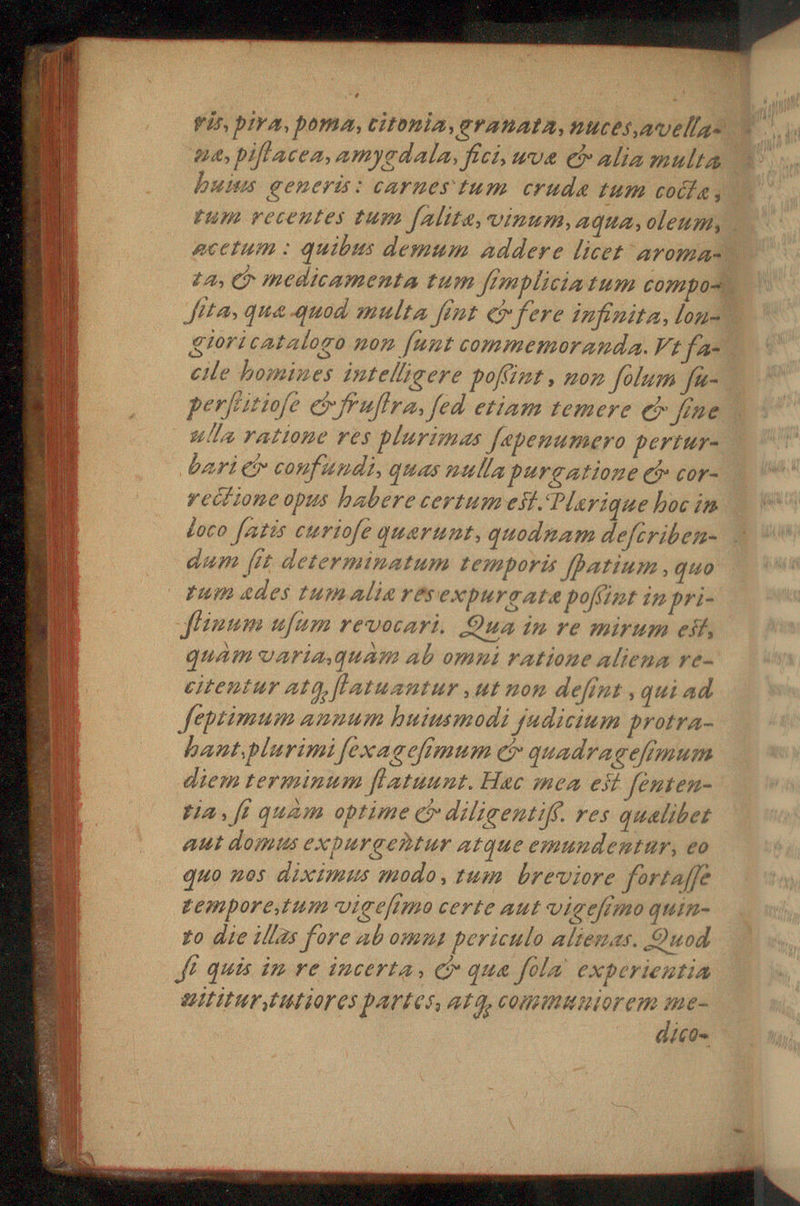 ris, pira, poma, citonia, granata, nuces, avella-
næ, piſtacea, amygdala, fici, uvæ & alia multa
huius generis: carnes tum crudæ tum coctæ,
tum recentes tum ſalitæ, vinum, aqua, oleum,
acetum: quibus demum addere licet aroma-
ta, & medicamenta tum ſimplicia tum compo-
ſita, quæ quod multa ſint & fere infinita, lon-
giori catalogo non ſunt commemoranda. Vt fa-
cile homines intelligere poſſint, non ſolum ſu-
perſtitioſe & fruſtra, ſed etiam temere & ſine
ulla ratione res plurimas ſæpenumero pertur-
bari & confundi, quas nulla purgatione & cor-
rectione opus habere certum eſt. Plærique hoc in
loco ſatis curioſe quærunt, quodnam deſcriben-
dum ſit determinatum temporis ſpatium, quo
tum ædes tum aliæ res expurgatæ poſſint in pri-
ſtinum uſum revocari. Qua in re mirum eſt,
quàm varia, quàm ab omni ratione aliena re-
citentur atq; ſtatuantur, ut non deſint, qui ad
ſeptimum annum huiusmodi judicium protra-
hant, plurimi ſexageſimum & quadrageſimum
diem terminum ſtatuunt. Hæc mea eſt ſenten-
tia, ſi quàm optime & diligentiſſ. res quælibet
aut domus expurgentur atque emundentur, eo
quo nos diximus modo, tum breviore fortaſſe
tempore, tum vigeſimo certe aut vigeſimo quin-
to die illas fore ab omni periculo alienas. Quod
ſi quis in re incerta, & quæ ſola experientia
nititur, tutiores partes, atq; communiorem me-
dico-